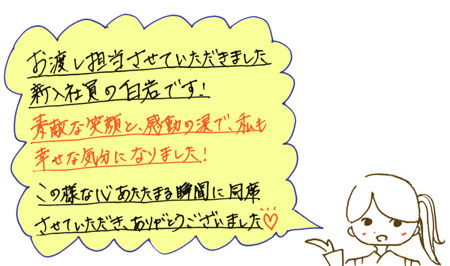 お渡し担当させていただきました
新入社員の白岩です！
素敵な笑顔と、感動の涙で、私も
幸せな気分になりました！
この様な心あたたまる瞬間に同席
させていただき、ありがとうございました♡